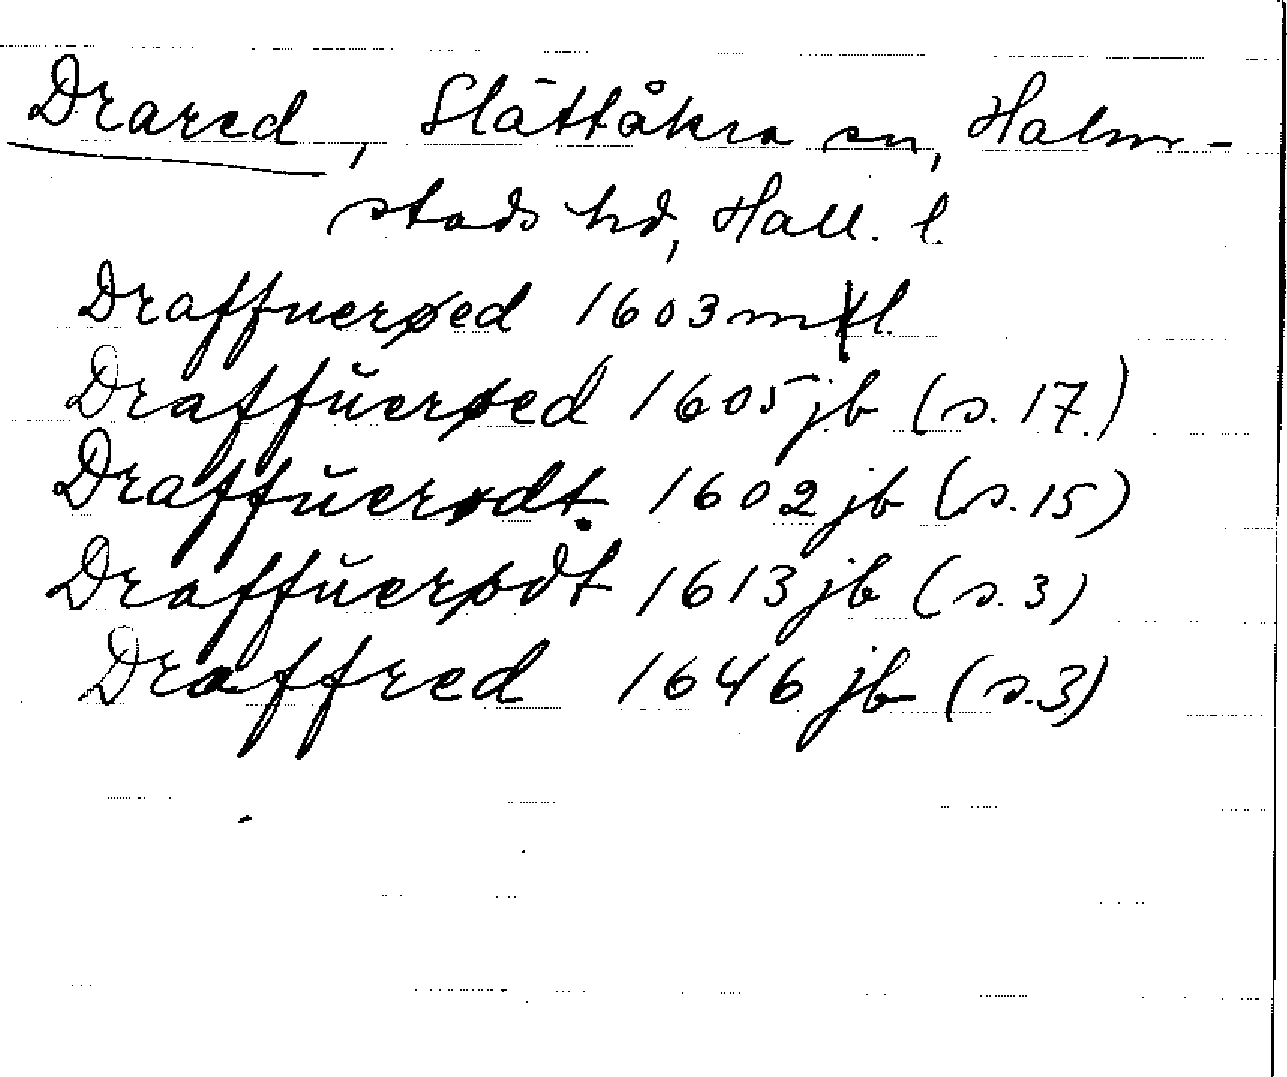 Drared, Slättåkra sn, Halm-
stads hd, Hall. l.
Draffuerøed 1603 mtl
Draffŭerøed 1605 jb (s. 17.)
Draffŭerødt. 1602 jb (s. 15)
Draffŭerødt 1613 jb (s. 3)
Draffred 1646 jb (s. 3)